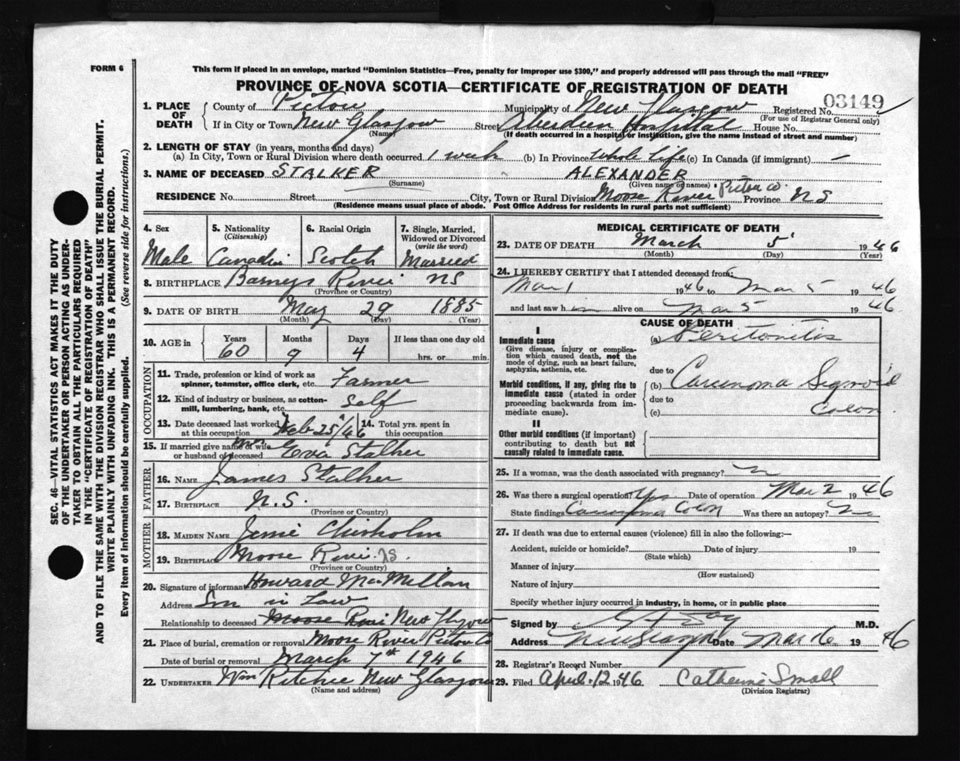 FORM 6
This form if placed in an envelope, marked "Dominion Statistics—Free, penalty for improper use $300," and properly addressed will pass through the mail "FREE"
PROVINCE OF NOVA SCOTIA—CERTIFICATE OF REGISTRATION OF DEATH
SEC. 46—VITAL STATISTICS ACT MAKES IT THE DUTY
OF THE UNDERTAKER OR PERSON ACTING AS UNDER-
TAKER TO OBTAIN ALL THE PARTICULARS REQUIRED
IN THE "CERTIFICATE OF REGISTRATION OF DEATH"
AND TO FILE THE SAME WITH THE DIVISION REGISTRAR WHO SHALL ISSUE THE BURIAL PERMIT.
WRITE PLAINLY WITH UNFADING INK. THIS IS A PERMANENT RECORD.
Every item of information should be carefully supplied. (See reverse side for instructions.)
1. PLACE OF DEATH County of Pictou Municipality of New Glasgow Registered No. 03149
(For use of Registrar General only)
If in City or Town New Glasgow Street Aberdeen Hospital House No.
(Name) (If death occurred in a hospital or institution, give the name instead of street and number)
2. LENGTH OF STAY (in years, months and days)
(a) In City, Town or Rural Division where death occurred 1 week (b) In Province Whole life (c) In Canada (if immigrant) —
3. NAME OF DECEASED STALKER ALEXANDER
(Surname) (Given name or names)
RESIDENCE No. Street City, Town or Rural Division Moose River Pictou Co. Province NS
(Residence means usual place of abode. Post Office Address for residents in rural parts not sufficient)
4. Sex 5. Nationality (Citizenship) 6. Racial Origin 7. Single, Married, Widowed or Divorced (write the word)
Male Canadi Scotch Married
8. BIRTHPLACE Barneys River NS
(Province or Country)
9. DATE OF BIRTH May 29 1885
(Month) (Day) (Year)
10. AGE in Years Months Days If less than one day old
60 9 4 hrs. or min.
OCCUPATION
11. Trade, profession or kind of work as spinner, teamster, office clerk, etc. Farmer
12. Kind of industry or business, as cotton-mill, lumbering, bank, etc. Self
13. Date deceased last worked at this occupation Feb 25/46 14. Total yrs. spent in this occupation
15. If married give name of wife or husband of deceased Stalker
FATHER
16. NAME James Stalker
17. BIRTHPLACE N.S.
(Province or Country)
MOTHER
18. MAIDEN NAME Jessie Chisholm
19. BIRTHPLACE Moose River NS
(Province or Country)
20. Signature of informant Howard MacMillan
Address Son in Law
Relationship to deceased Moose River New Glasgow
21. Place of burial, cremation or removal Moose River Pictou Co
Date of burial or removal March 7th 1946
22. UNDERTAKER Wm Ritchie New Glasgow
(Name and address)
MEDICAL CERTIFICATE OF DEATH
23. DATE OF DEATH March 5 1946
(Month) (Day) (Year)
24. I HEREBY CERTIFY that I attended deceased from:
Mar 1 1946 to Mar 5 1946
and last saw him alive on Mar 5 1946
CAUSE OF DEATH
I
Immediate cause (a) Peritonitis
Give disease, injury or complication which caused death, not the mode of dying, such as heart failure, asphyxia, asthenia, etc.
due to
Morbid conditions, if any, giving rise to immediate cause (stated in order proceeding backwards from immediate cause).
(b) Carcinoma Sigmoid
due to
(c) Colon
II
Other morbid conditions (if important) contributing to death but not causally related to immediate cause.
25. If a woman, was the death associated with pregnancy?
26. Was there a surgical operation? Yes Date of operation Mar 2 1946
State findings Carcinoma Colon Was there an autopsy? No
27. If death was due to external causes (violence) fill in also the following:—
Accident, suicide or homicide? Date of injury 19
(State which)
Manner of injury
(How sustained)
Nature of injury
Specify whether injury occurred in industry, in home, or in public place
Signed by M.D.
Address New Glasgow Date Mar 6 1946
28. Registrar's Record Number
29. Filed April 12 1946 Catherine Small
(Division Registrar)